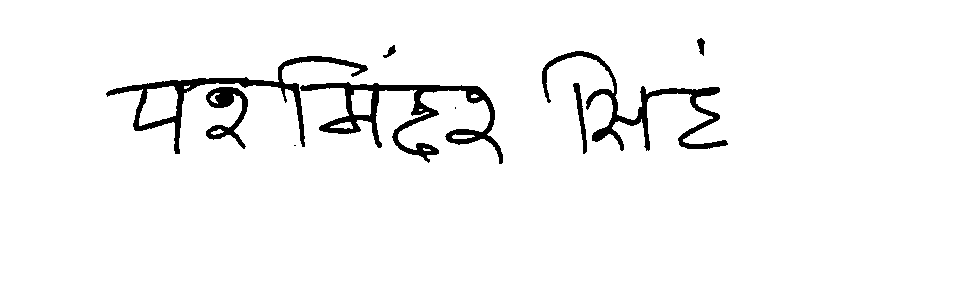 परमिंदर सिहं